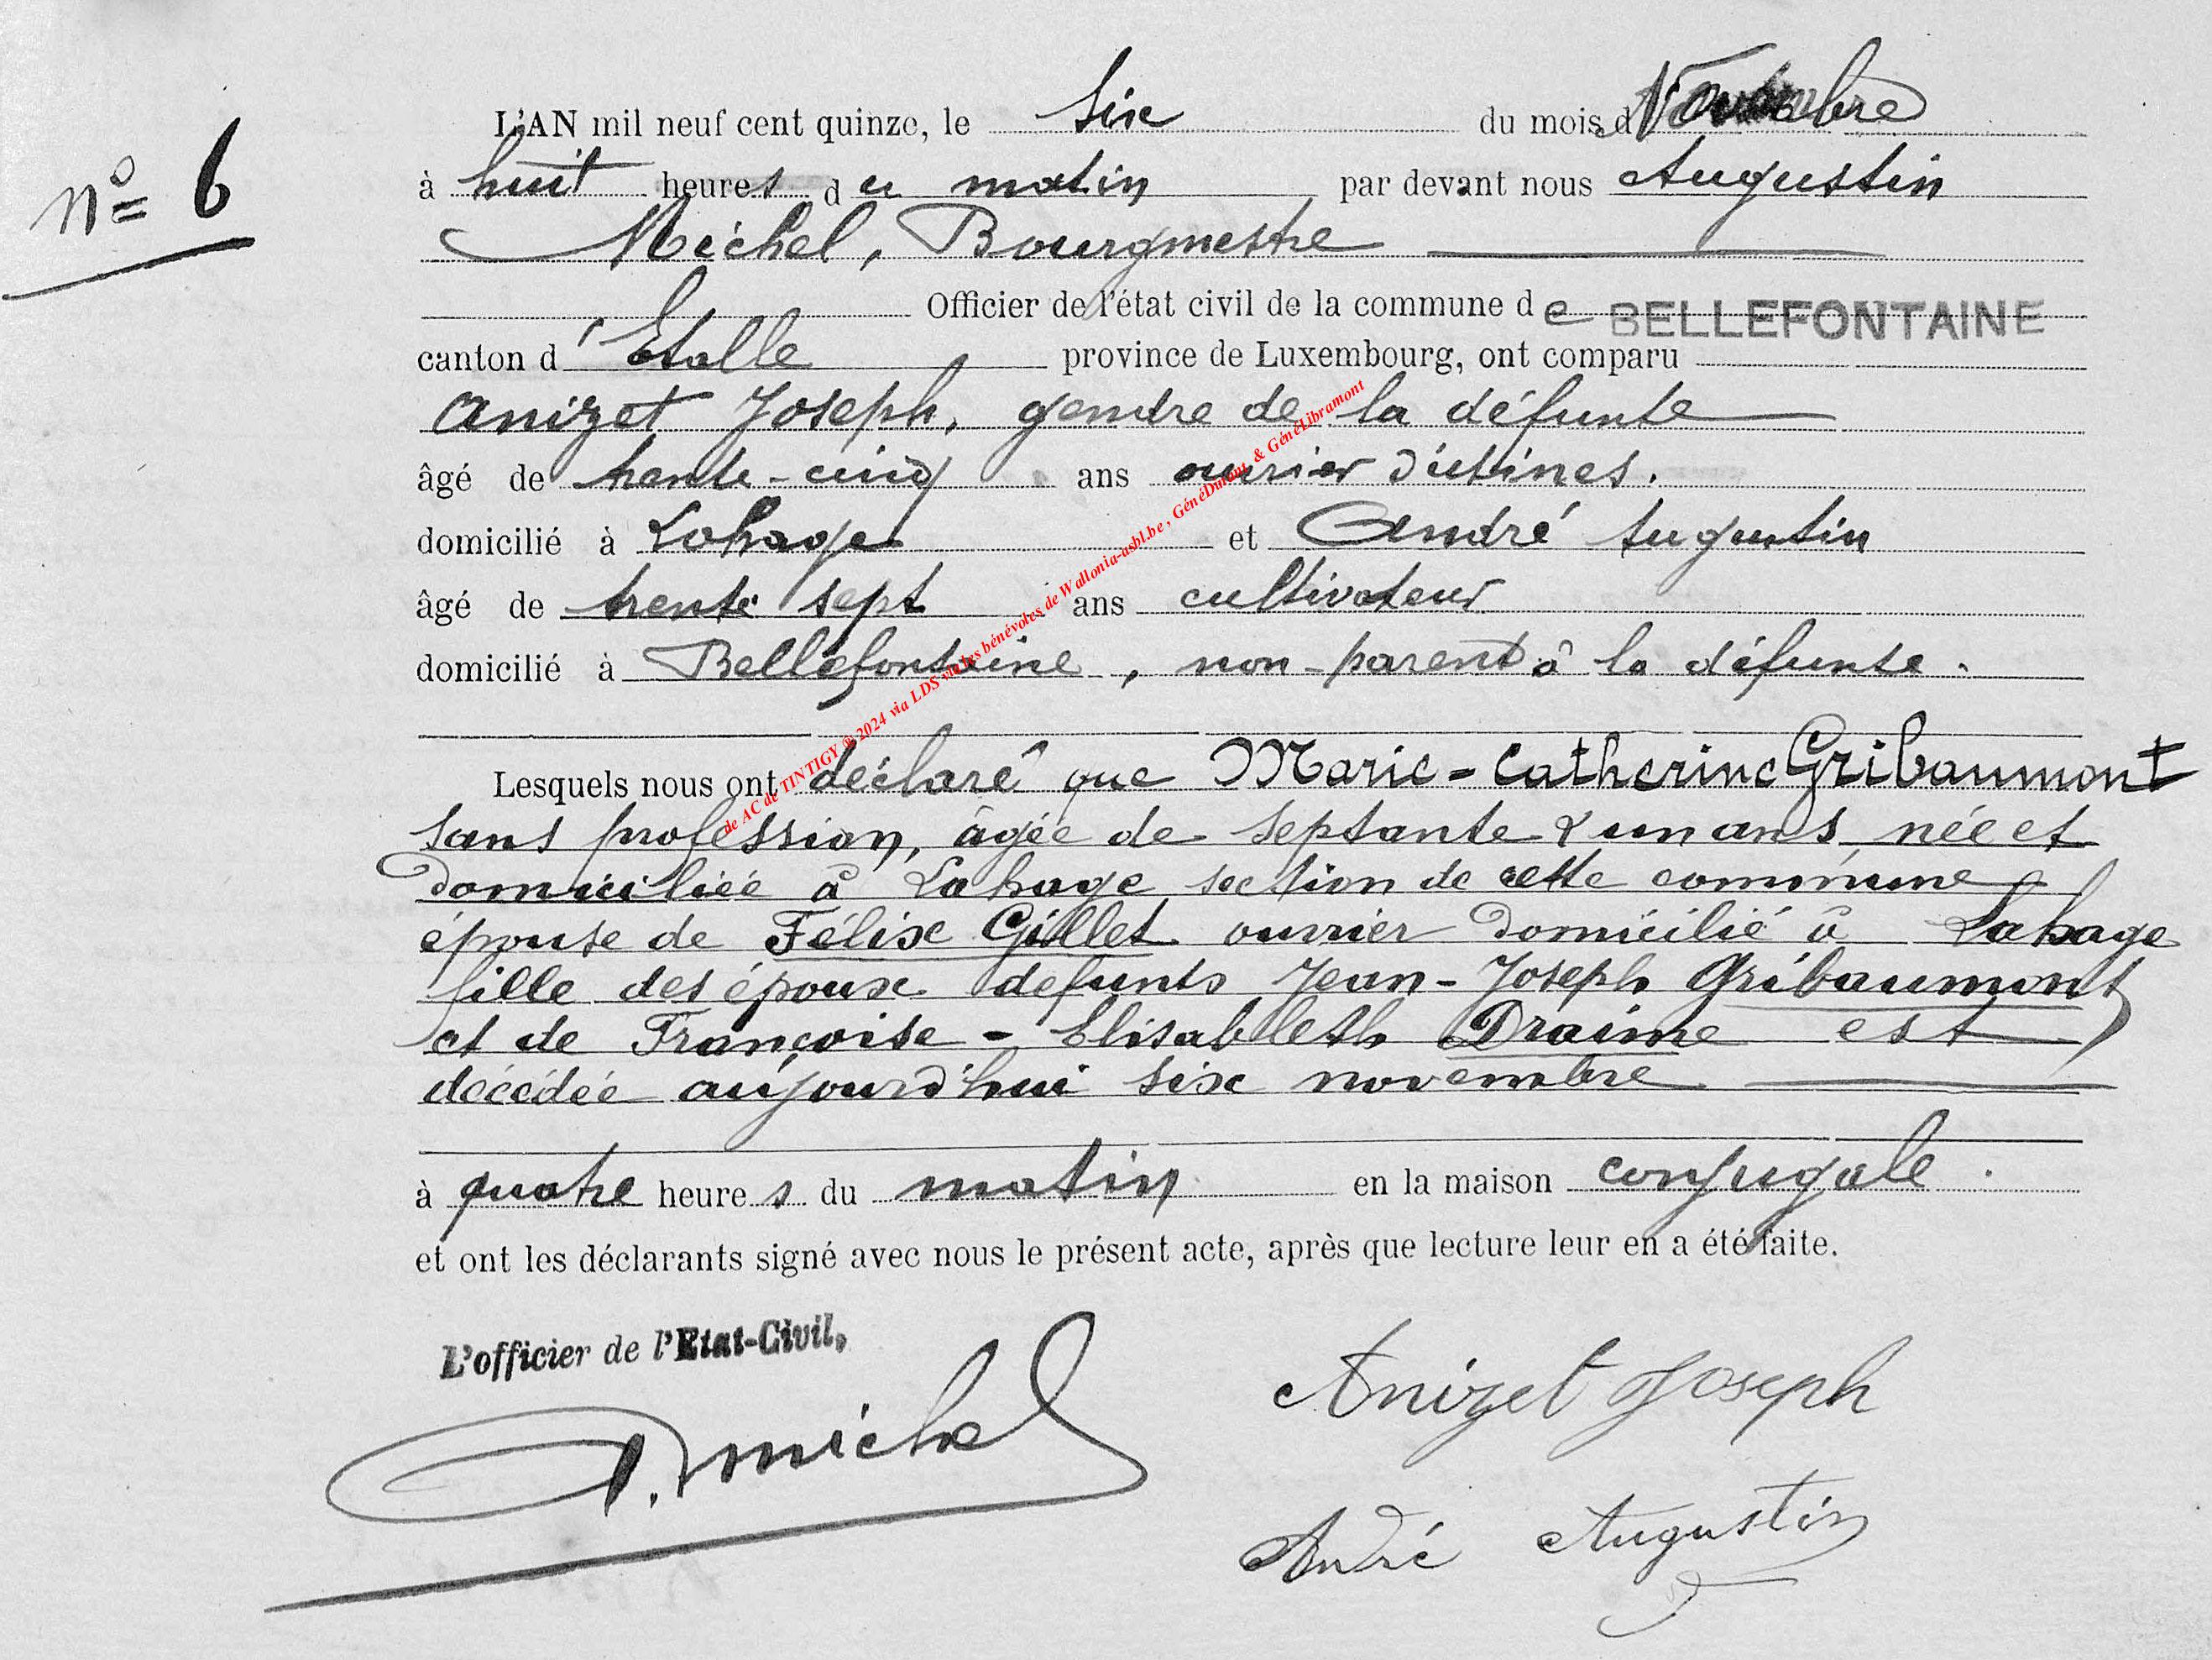 L'AN mil neuf cent quinze, le six du mois d Novembre
n° 6
à huit heures du matin par devant nous Augustin
Michel, Bourgmestre
Officier de l'état civil de la commune de BELLEFONTAINE
canton d'Etalle province de Luxembourg, ont comparu
Anizet Joseph, gendre de la défunte
âgé de trente-cinq ans ouvrier d'usines.
domicilié à Lahage et André Augustin
âgé de trente sept ans cultivateur
domicilié à Bellefontaine, non-parent à la défunte.
Lesquels nous ont déclaré que Marie-Catherine Gribaumont
sans profession, âgée de septante & un ans, née et
domiciliée à Lahage section de cette commune
épouse de Félix Gillet ouvrier domicilié à Lahage
fille des époux defunts Jean-Joseph Gribaumont
et de Françoise-Elisableth Draime est
décédée aujourd'hui six novembre
à quatre heures du matin en la maison conjugale.
et ont les déclarants signé avec nous le présent acte, après que lecture leur en a été faite.
L'officier de l'Etat-Civil,
A. Michel
Anizet Joseph
André Augustin
de AC de TINTIGY ® 2024 via LDS via les bénévoles de Wallonia-asbl.be, GénéDurant & GénéLibramont